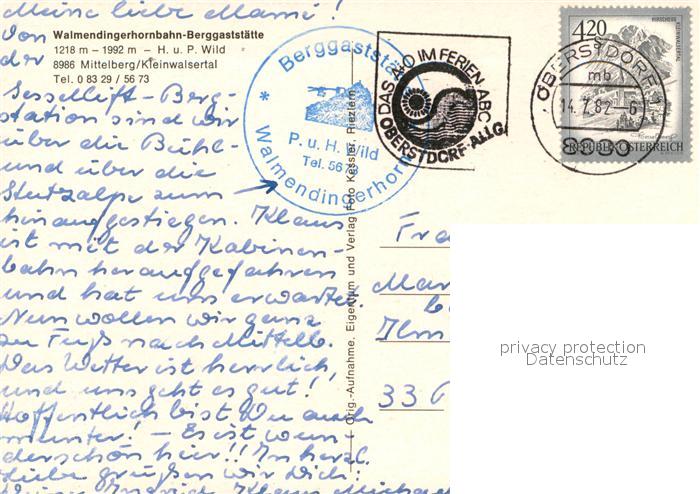 Meine liebe Mami!
Von
der
Sessellift-Berg-
station sind wir
über die Bühl-
und über die
Stutzalpe zum
hinaufgestiegen. Klaus
ist mit der Kabinen-
bahn heraufgefahren
und hat uns erwartet.
Nun wollen wir ganz
zu Fuß nach Mittelb.
Das Wetter ist herrlich
und uns geht es gut!
Hoffentlich bist Du auch
munter! - Es ist wun-
derschön hier!! In herzl.
Liebe grüßen wir Dich:
Klaus
Walmendingerhornbahn-Berggaststätte
1218 m – 1992 m – H. u. P. Wild
8986 Mittelberg/Kleinwalsertal
Tel. 0 83 29 / 56 73
Berggaststä
P. u. H. Wild
Tel. 56
* Walmendingerhorn
DAS A+O IM FERIEN ABC
OBERSTDORF ALLG.
OBERSTDORF 1
mb
14.7.82 - 6
8980
4.20
HIRSCHEGG
KLEINWALSERTAL
REPUBLIK ÖSTERREICH
Orig.-Aufnahme, Eigentum und Verlag Foto Kessler, Riezlern
Fra
Mar
Ilm
33
privacy protection
Datenschutz